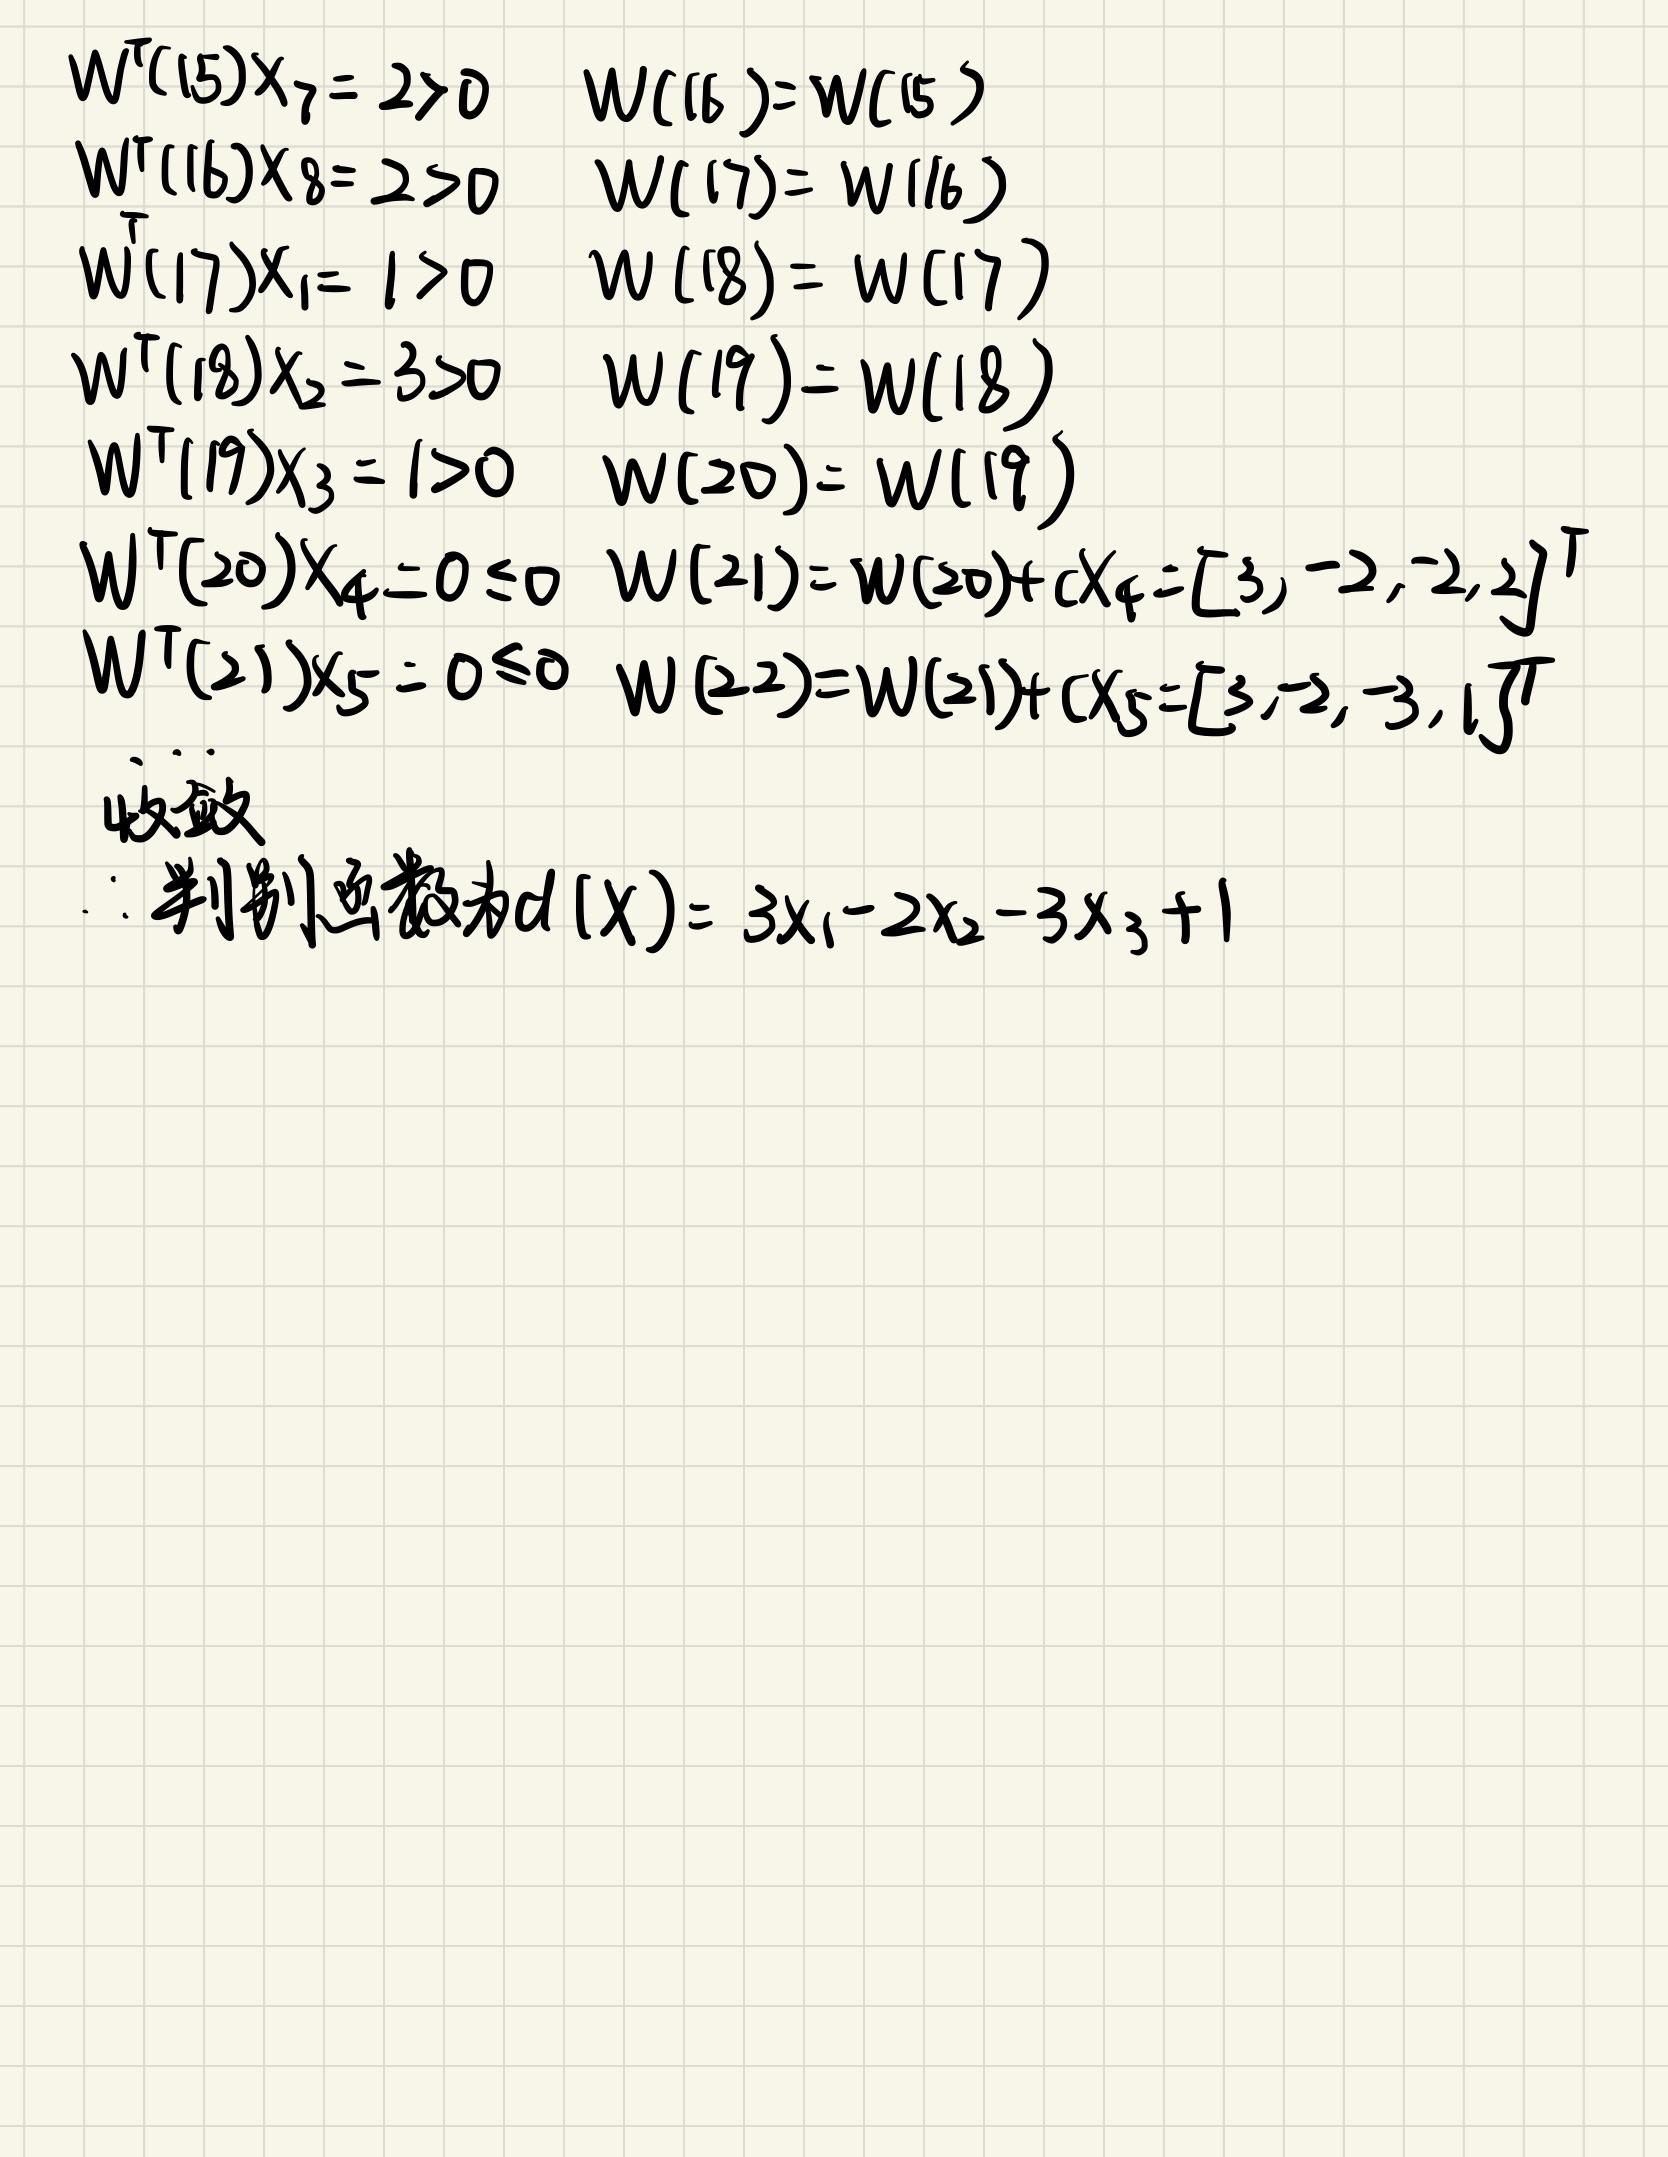 Wᵀ(15)X₇ = 2>0 W(16)=W(15)
Wᵀ(16)X₈ = 2>0 W(17)= W(16)
Wᵀ(17)X₁ = 1>0 W(18)= W(17)
Wᵀ(18)X₂ = 3>0 W(19)= W(18)
Wᵀ(19)X₃ = 1>0 W(20)= W(19)
Wᵀ(20)X₄ = 0≤0 W(21)= W(20)+cX₄=[3, -2, -2, 2]ᵀ
Wᵀ(21)X₅ = 0≤0 W(22)=W(21)+cX₅=[3, -2, -3, 1]ᵀ
...
收敛
∴判别函数为d(X)= 3x₁-2x₂-3x₃+1